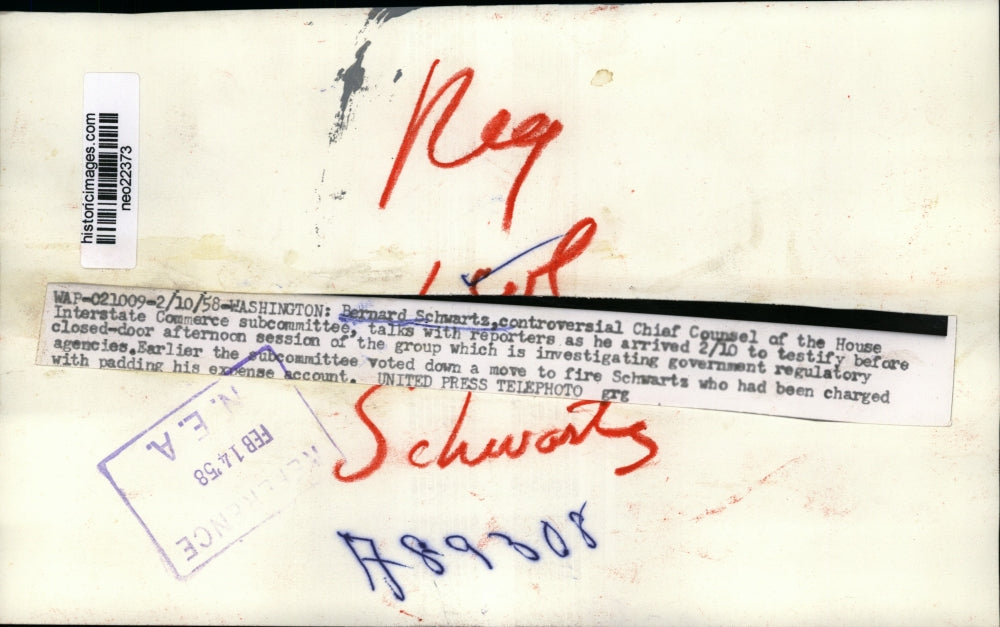 historicimages.com
neo22373
Reg
WAP-021009-2/10/58-WASHINGTON: Bernard Schwartz, controversial Chief Counsel of the House
Interstate Commerce subcommittee, talks with reporters as he arrived 2/10 to testify before
closed-door afternoon session of the group which is investigating government regulatory
agencies. Earlier the subcommittee voted down a move to fire Schwartz who had been charged
with padding his expense account. UNITED PRESS TELEPHOTO grg
Schwartz
N. E. A.
FEB 14 '58
REFERENCE
A89308